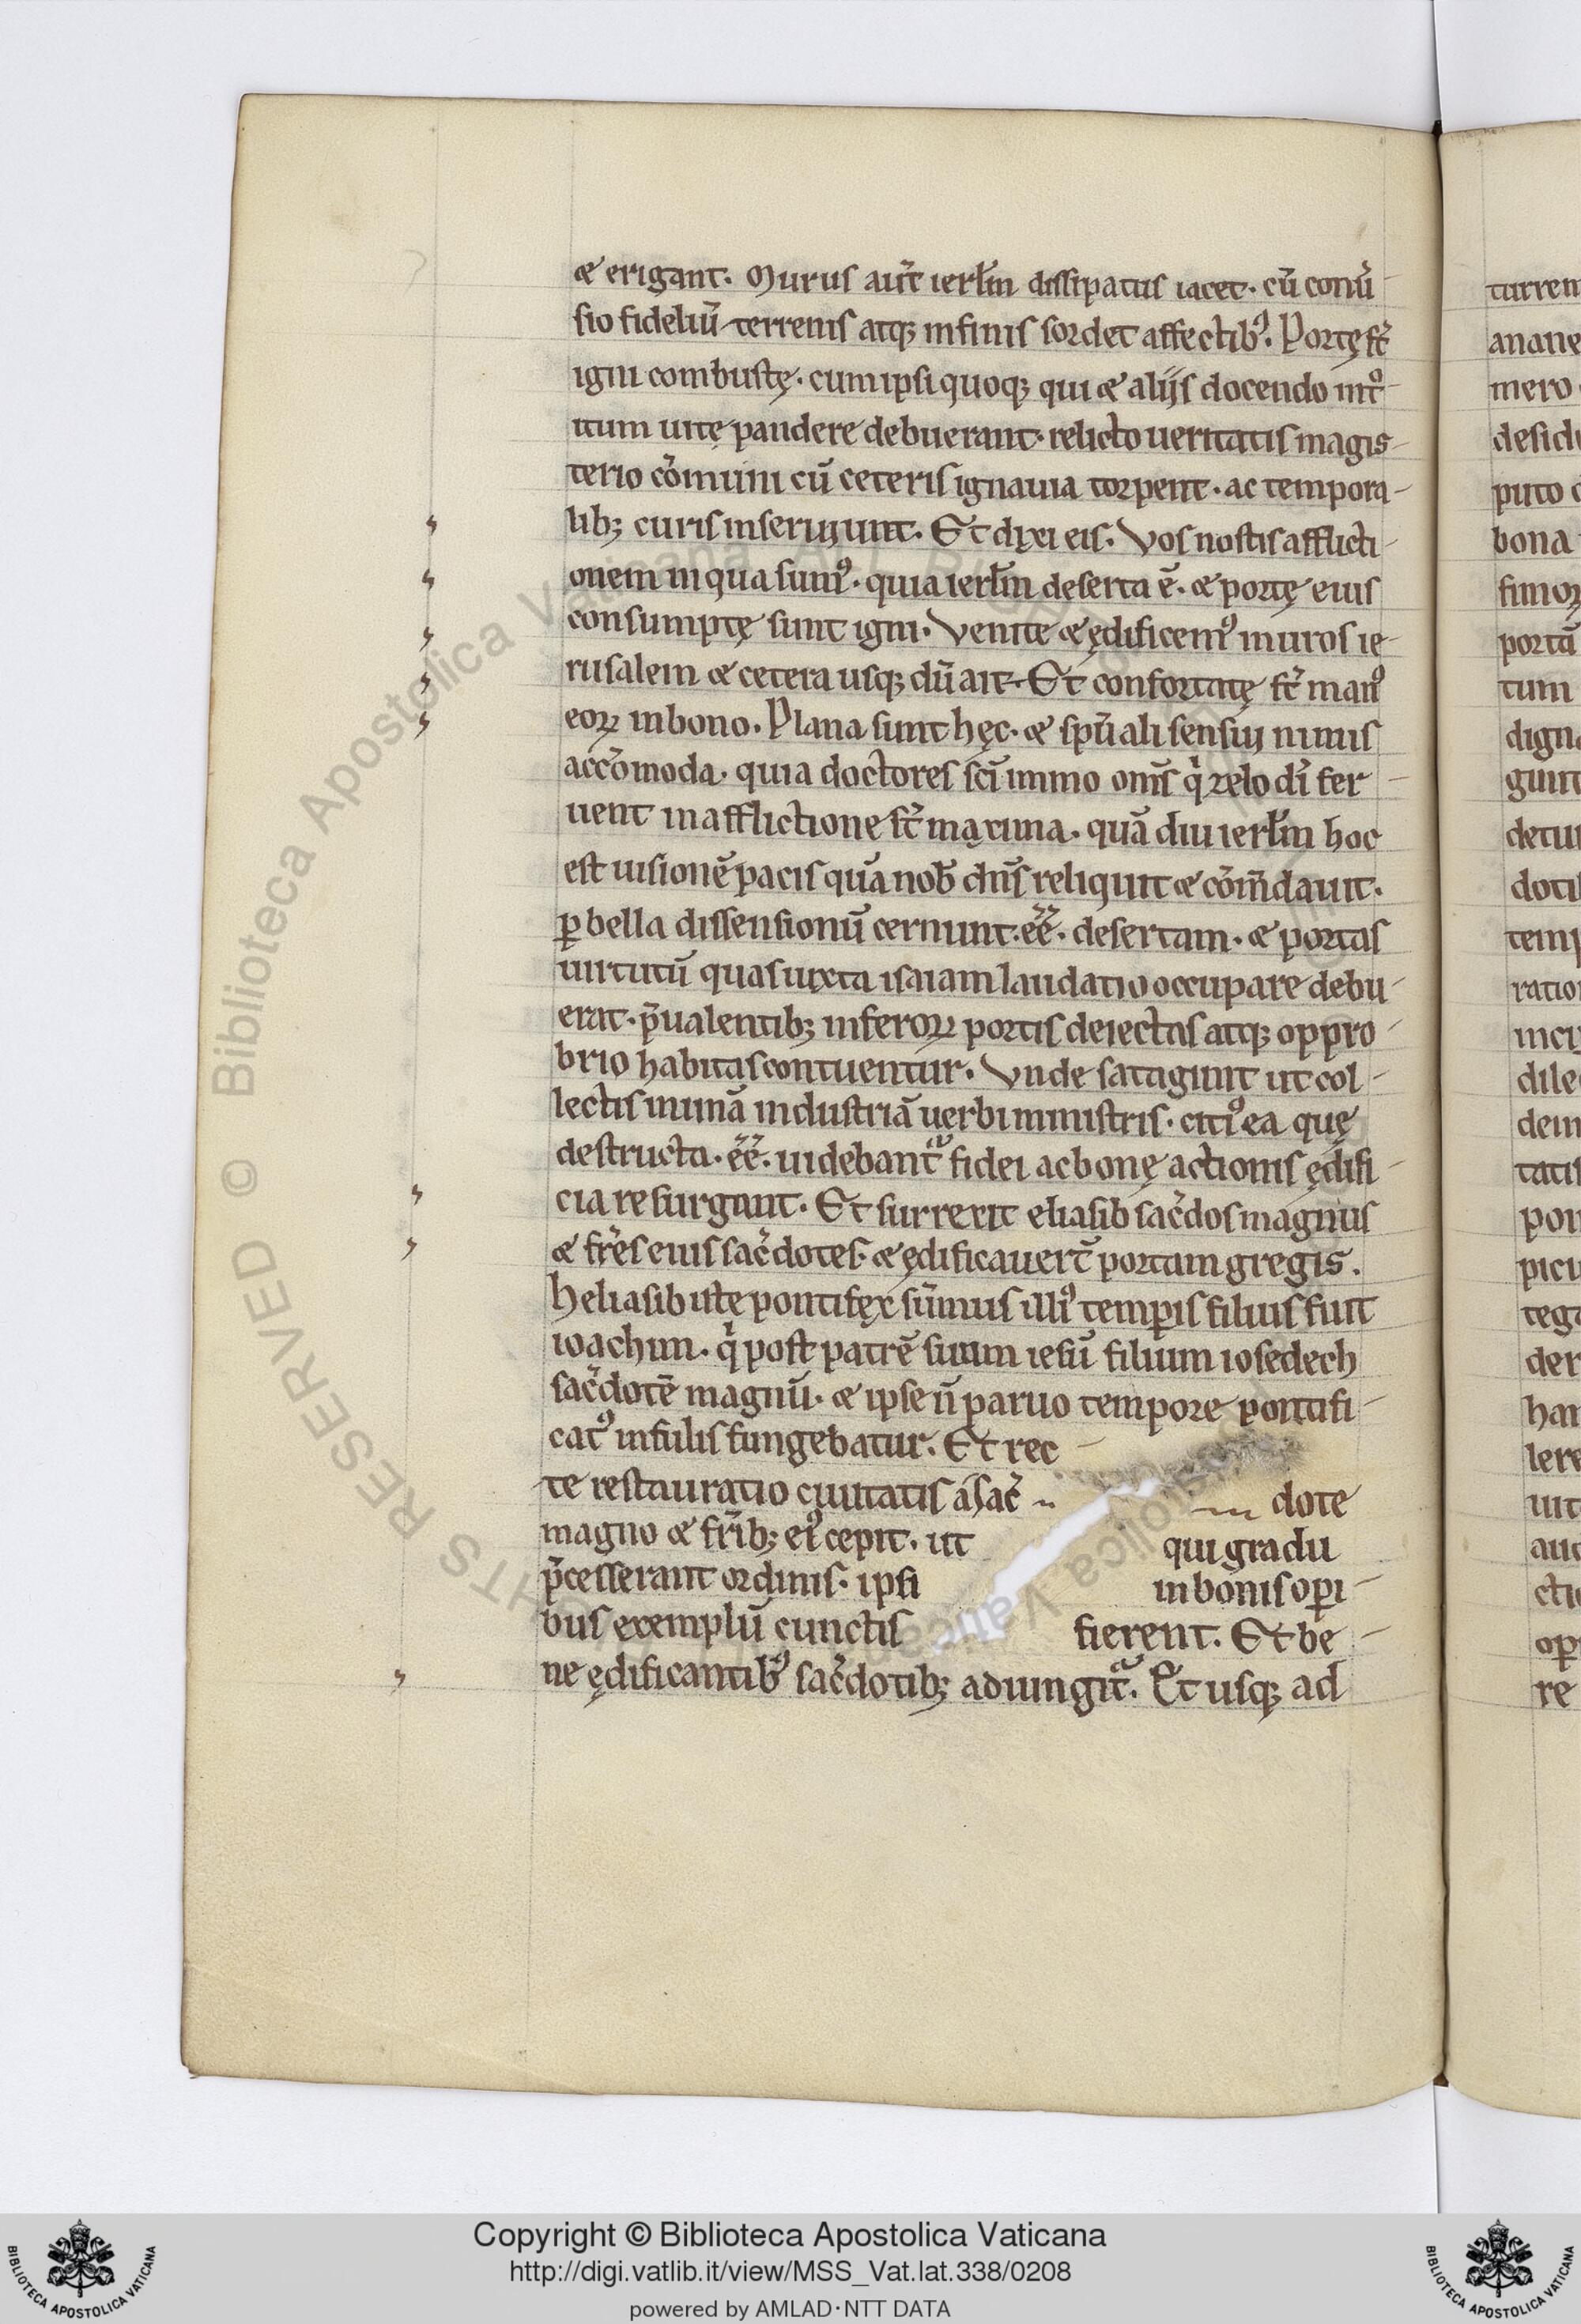 & erigant. Murus aut̃ ierl̃m dissipatus iacet. cũ conũ-
sio fideliũ terrenis atq; infimis sordet affectibꝰ. Portę st̃
igni combustę. cum ipsi quoq; qui & alijs docendo intͦ-
itum uitę pandere debuerant. relicto ueritatis magis-
terio cõmuni cũ ceteris ignauia torpent. ac tempora-
lib; curis inseruiunt. Et dixi eis. Vos nostis afflicti-
onem in qua sumꝰ. quia ierl̃m deserta ẽ. & portę eius
consumptę sunt igni. Venite & ędificemꝰ muros ie-
rusalem & cetera usq; dũ ait. Et confortatę st̃ manꝰ
eoꝝ in bono. Plana sunt hęc. & spũali sensui nimis
accõmoda. quia doctores sc̃i immo om̃s q̇ zelo dĩ fer-
uent in afflictione st̃ maxima. quã diu ierl̃m hoc
est uisionẽ pacis quã nob̃ dñs reliquit & cõm̃dauit.
ꝑ bella dissensionũ cernunt. ẽẽ. desertam. & portas
uirtutũ quas iuxta isaiam laudatio occupare debu-
erat. p̃ualentib; inferoꝝ portis deiectas atq; oppro-
brio habitas contuentur. Vnde satagunt ut col-
lectis in unã industriã uerbi ministris. citiꝰ ea quę
destructa. ẽẽ. uidebant̃ fidei ac bonę actionis ędifi-
cia resurgant. Et surrexit eliasib sac̃dos magnus
& fr̃es eius sac̃dotes. & ędificauer̃t portam gregis.
Heliasib iste pontifex sũmus illiꝰ temꝑis filius fuit
ioachim. q̇ post patrẽ suum iesũ filium iosedech
sac̃dotẽ magnũ. & ipse ñ paruo tempore pontifi-
catꝰ infulis fungebatur. Et rec-
te restauratio ciuitatis a sac̃ dote
magno & fr̃ib; eiꝰ cepit. ut qui gradu
p̃cesserant ordinis. ipsi in bonis oꝑi-
bus exemplũ cunctis fierent. Et be-
ne ędificantibꝰ sac̃dotib; adiungit̃. Et usq; ad
turrem
anane
mero
desid
puto
bona
portã
tum
digna
dotib
temp
ratio
dile
tatis
der
re
© Biblioteca Apostolica Vaticana ALL RIGHTS RESERVED
Copyright © Biblioteca Apostolica Vaticana
http://digi.vatlib.it/view/MSS_Vat.lat.338/0208
powered by AMLAD·NTT DATA
BIBLIOTECA APOSTOLICA VATICANA
BIBLIOTECA APOSTOLICA VATICANA